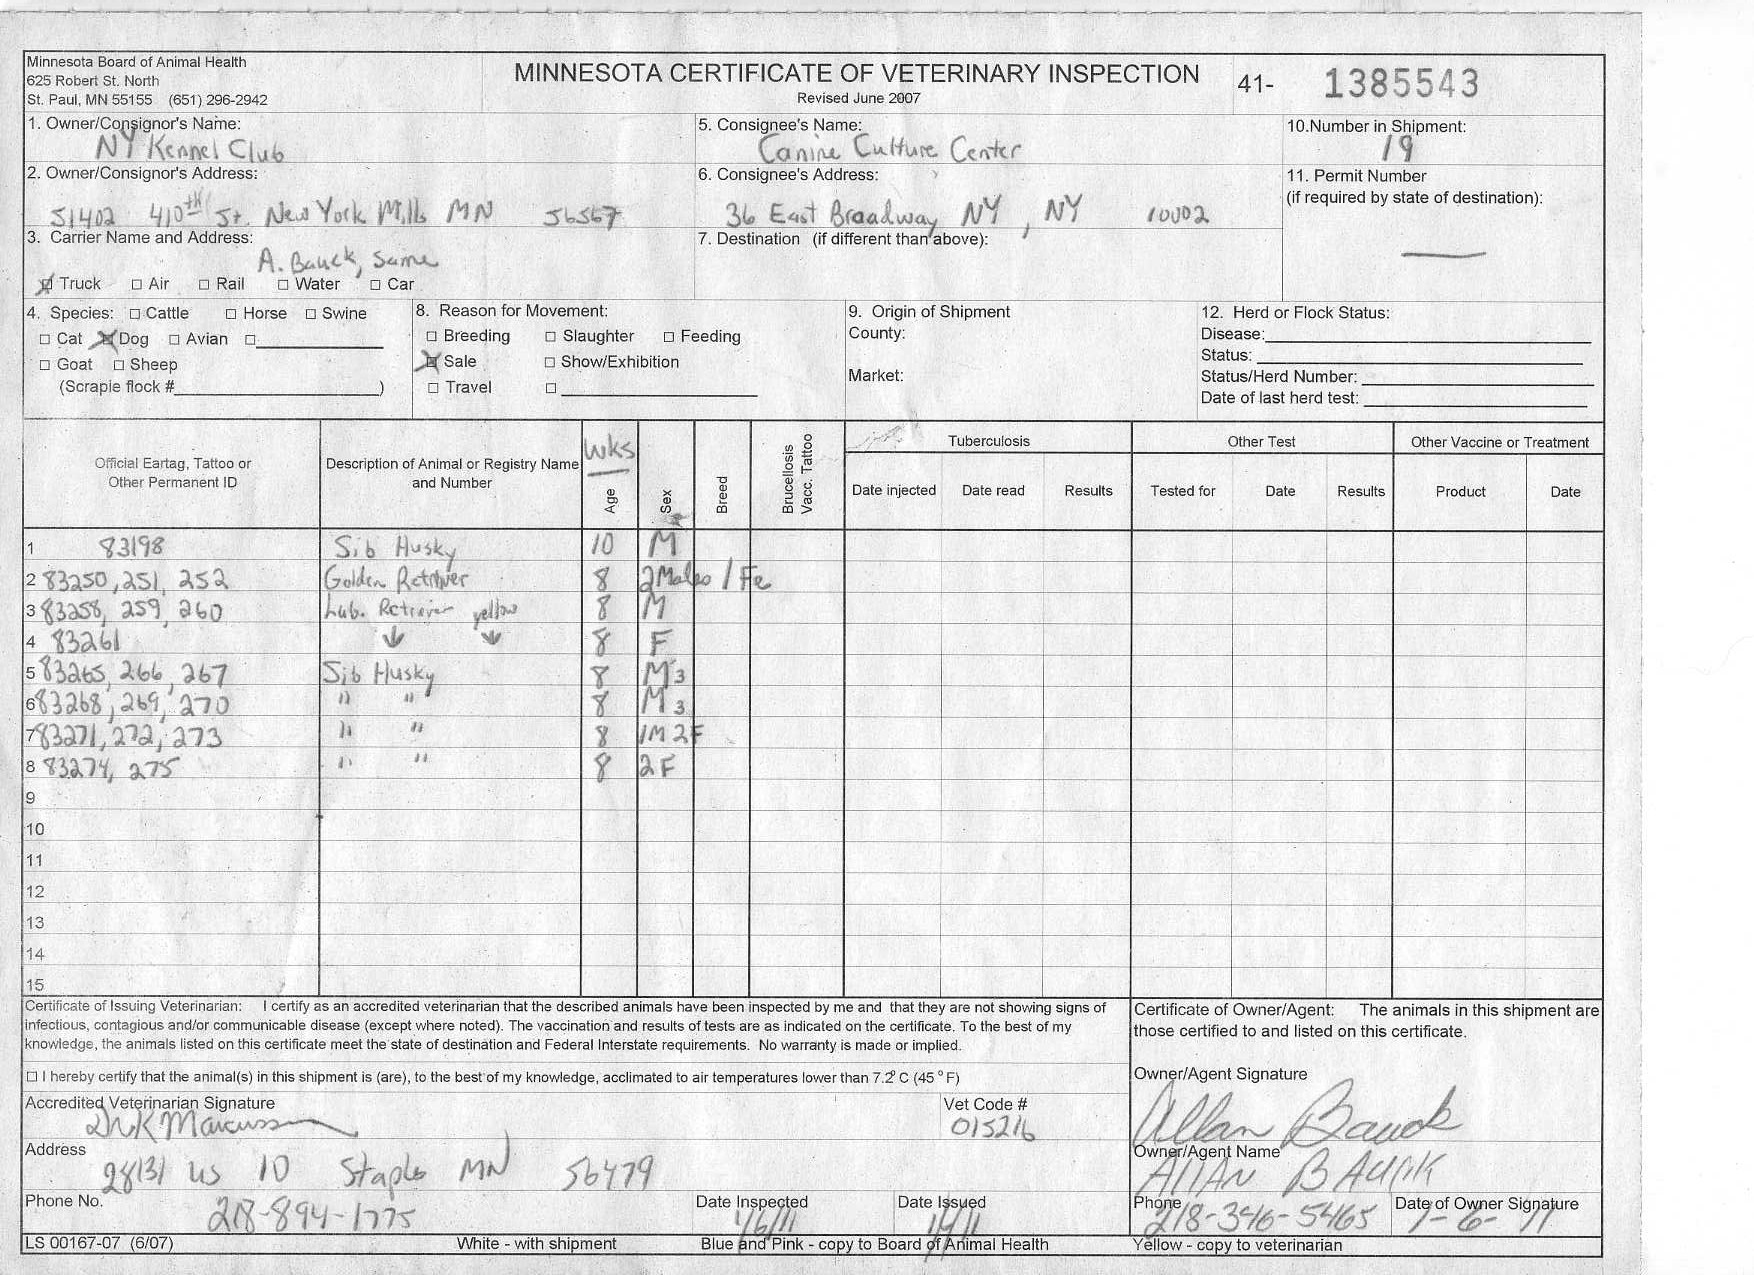 Minnesota Board of Animal Health
625 Robert St. North
St. Paul, MN 55155 (651) 296-2942
MINNESOTA CERTIFICATE OF VETERINARY INSPECTION
Revised June 2007
41- 1385543
1. Owner/Consignor's Name:
NY Kennel Club
5. Consignee's Name:
Canine Culture Center
10.Number in Shipment:
19
2. Owner/Consignor's Address:
51402 410th St. New York Mills MN 56567
6. Consignee's Address:
36 East Broadway NY, NY 10002
11. Permit Number
(if required by state of destination):
3. Carrier Name and Address:
A. Bauck, Same
Truck Air Rail Water Car
7. Destination (if different than above):
4. Species: Cattle Horse Swine
Cat Dog Avian
Goat Sheep
(Scrapie flock # )
8. Reason for Movement:
Breeding Slaughter Feeding
Sale Show/Exhibition
Travel
9. Origin of Shipment
County:
Market:
12. Herd or Flock Status:
Disease:
Status:
Status/Herd Number:
Date of last herd test:
Official Eartag, Tattoo or
Other Permanent ID
Description of Animal or Registry Name
and Number
wks
Age
Sex
Breed
Brucellosis
Vacc. Tattoo
Tuberculosis
Date injected Date read Results
Other Test
Tested for Date Results
Other Vaccine or Treatment
Product Date
1 83198 Sib Husky 10 M
2 83250, 251, 252 Golden Retriever 8 2Males 1 Fe
3 83258, 259, 260 Lab. Retriever yellow 8 M
4 83261 8 F
5 83265, 266, 267 Sib Husky 8 M 3
6 83268, 269, 270 " " 8 M 3
7 83271, 272, 273 " " 8 1M 2F
8 83274, 275 " " 8 2F
9
10
11
12
13
14
15
Certificate of Issuing Veterinarian: I certify as an accredited veterinarian that the described animals have been inspected by me and that they are not showing signs of
infectious, contagious and/or communicable disease (except where noted). The vaccination and results of tests are as indicated on the certificate. To the best of my
knowledge, the animals listed on this certificate meet the state of destination and Federal Interstate requirements. No warranty is made or implied.
I hereby certify that the animal(s) in this shipment is (are), to the best of my knowledge, acclimated to air temperatures lower than 7.2° C (45° F)
Certificate of Owner/Agent: The animals in this shipment are
those certified to and listed on this certificate.
Accredited Veterinarian Signature
Vet Code #
015216
Owner/Agent Signature
Allan Bauck
Address
28131 US 10 Staples MN 56479
Owner/Agent Name
Allan Bauck
Phone No.
218-894-1775
Date Inspected
1/6/11
Date Issued
Phone
218-346-5465
Date of Owner Signature
1-6-11
LS 00167-07 (6/07)
White - with shipment
Blue and Pink - copy to Board of Animal Health
Yellow - copy to veterinarian